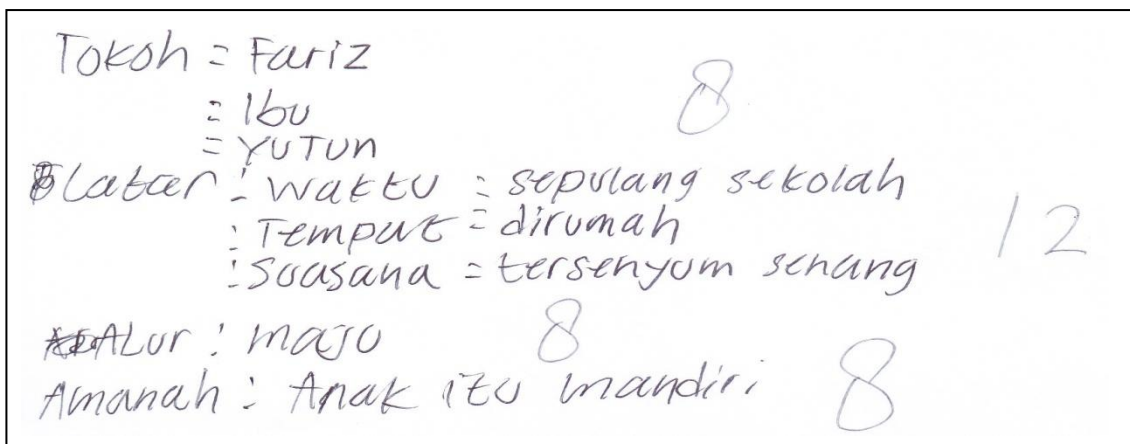 Tokoh = Fariz
8
= Ibu
= YUTUN
Latar : Waktu = sepulang sekolah
: Tempat = dirumah
: Suasana = tersenyum senang
12
ALur : maju
8
Amanah : Anak itu mandiri
8